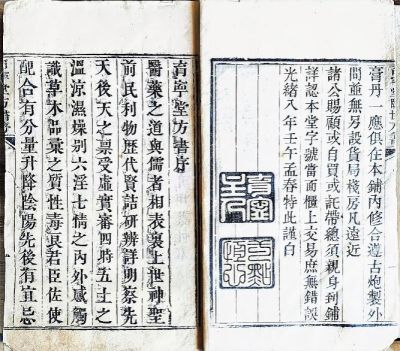 膏丹一應俱在本鋪內修合遵古炮製外
間並無另設貨局棧房凡遠近
諸公賜顧或自買或託帶總須親身到鋪
詳認本堂字號當面櫃上交易庶無錯誤
光緒八年壬午孟春特此謹白
育寧主人
育寧堂方書序
醫藥之道與儒者相表裏上世神聖
前民利物歷代賢喆研辨詳明察先
天後天之稟受虛實審四時五土之
溫涼濕燥別六淫七情之內外感觸
識草木品彙之質性毒良君臣佐使
配合有分量升降陰陽先後有宜忌